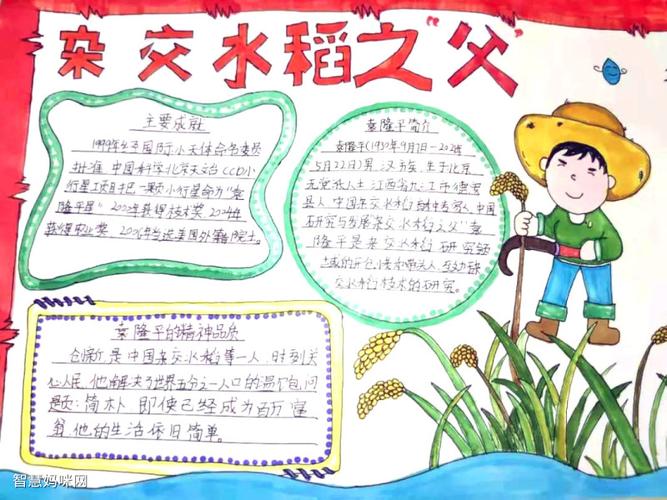 杂交水稻之"父"
主要成就
1999年经国际小天体命名委员
批准 中国科学北京天文台 CCD小
行星项目把一颗小行星命为"袁
隆平星" 2000年获得技术奖 2004年
获 农业奖 2006年当选美国外籍院士。
袁隆平简介
袁隆平(1930年9月7日-2021年
5月22日)男 汉族 生于北京
无党派人士 江西省九江市德安
县人 中国杂交水稻育种专家 中国
研究与发展杂交水稻之父"袁
隆平是杂交水稻研究领
域的开创 和带头人
杂交水稻技术的研究。
袁隆平的精神品质
创新 是中国杂交水稻第一人 时刻关
心人民 他解决了世界五分之一人口的温饱问
题: 简朴 即使已经成为百万富
翁 他的生活依旧简单。
智慧妈咪网